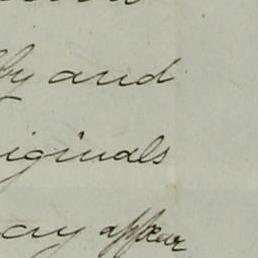 by and
iginals
ay appear